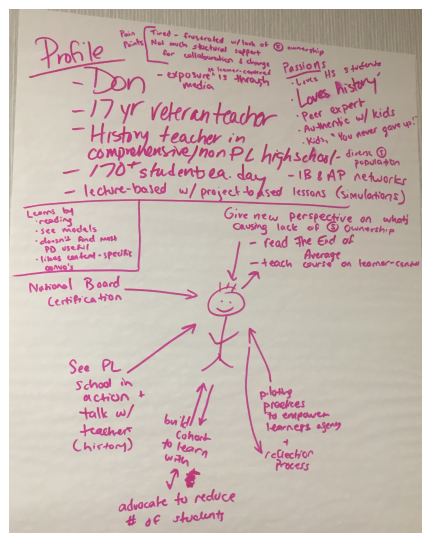 Profile
Pain Points
Tired - frustrated w/ lack of Ⓢ ownership
Not much structural support
for collaboration & change
- exposure to learner-centered is through
media
Passions
- Loves HS students
- Loves history!
- Peer expert
- Authentic w/ kids
- Kids, "You never gave up!"
- Don
- 17 yr veteran teacher
- History teacher in
comprehensive/non PL high school - diverse Ⓢ
population
- 170+ students ea. day
- IB & AP networks
- lecture-based w/ project-based lessons (simulations)
Learns by
- reading
- see models
- doesn't find most
PD useful
- likes content-specific
convo's
Give new perspective on what's
causing lack of Ⓢ ownership
- read The End of
Average
- teach course on learner-center
National Board
Certification
See PL
school in
action +
talk w/
teachers
(history)
build
cohort
to learn
with
advocate to reduce
# of students
piloting
practices
to empower
learners agency
+
reflection
process